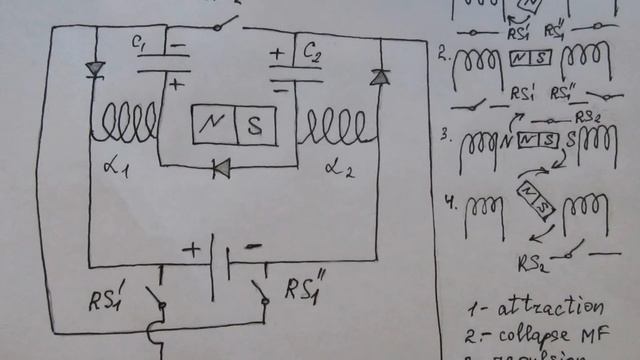 C1 - + C2
+ -
N S
α1 α2
+ -
RS1' RS1"
RS1' RS1"
2. N S
RS1' RS1"
RS2
3. N N S S
4. N S
RS2
1- attraction
2.- collapse MF